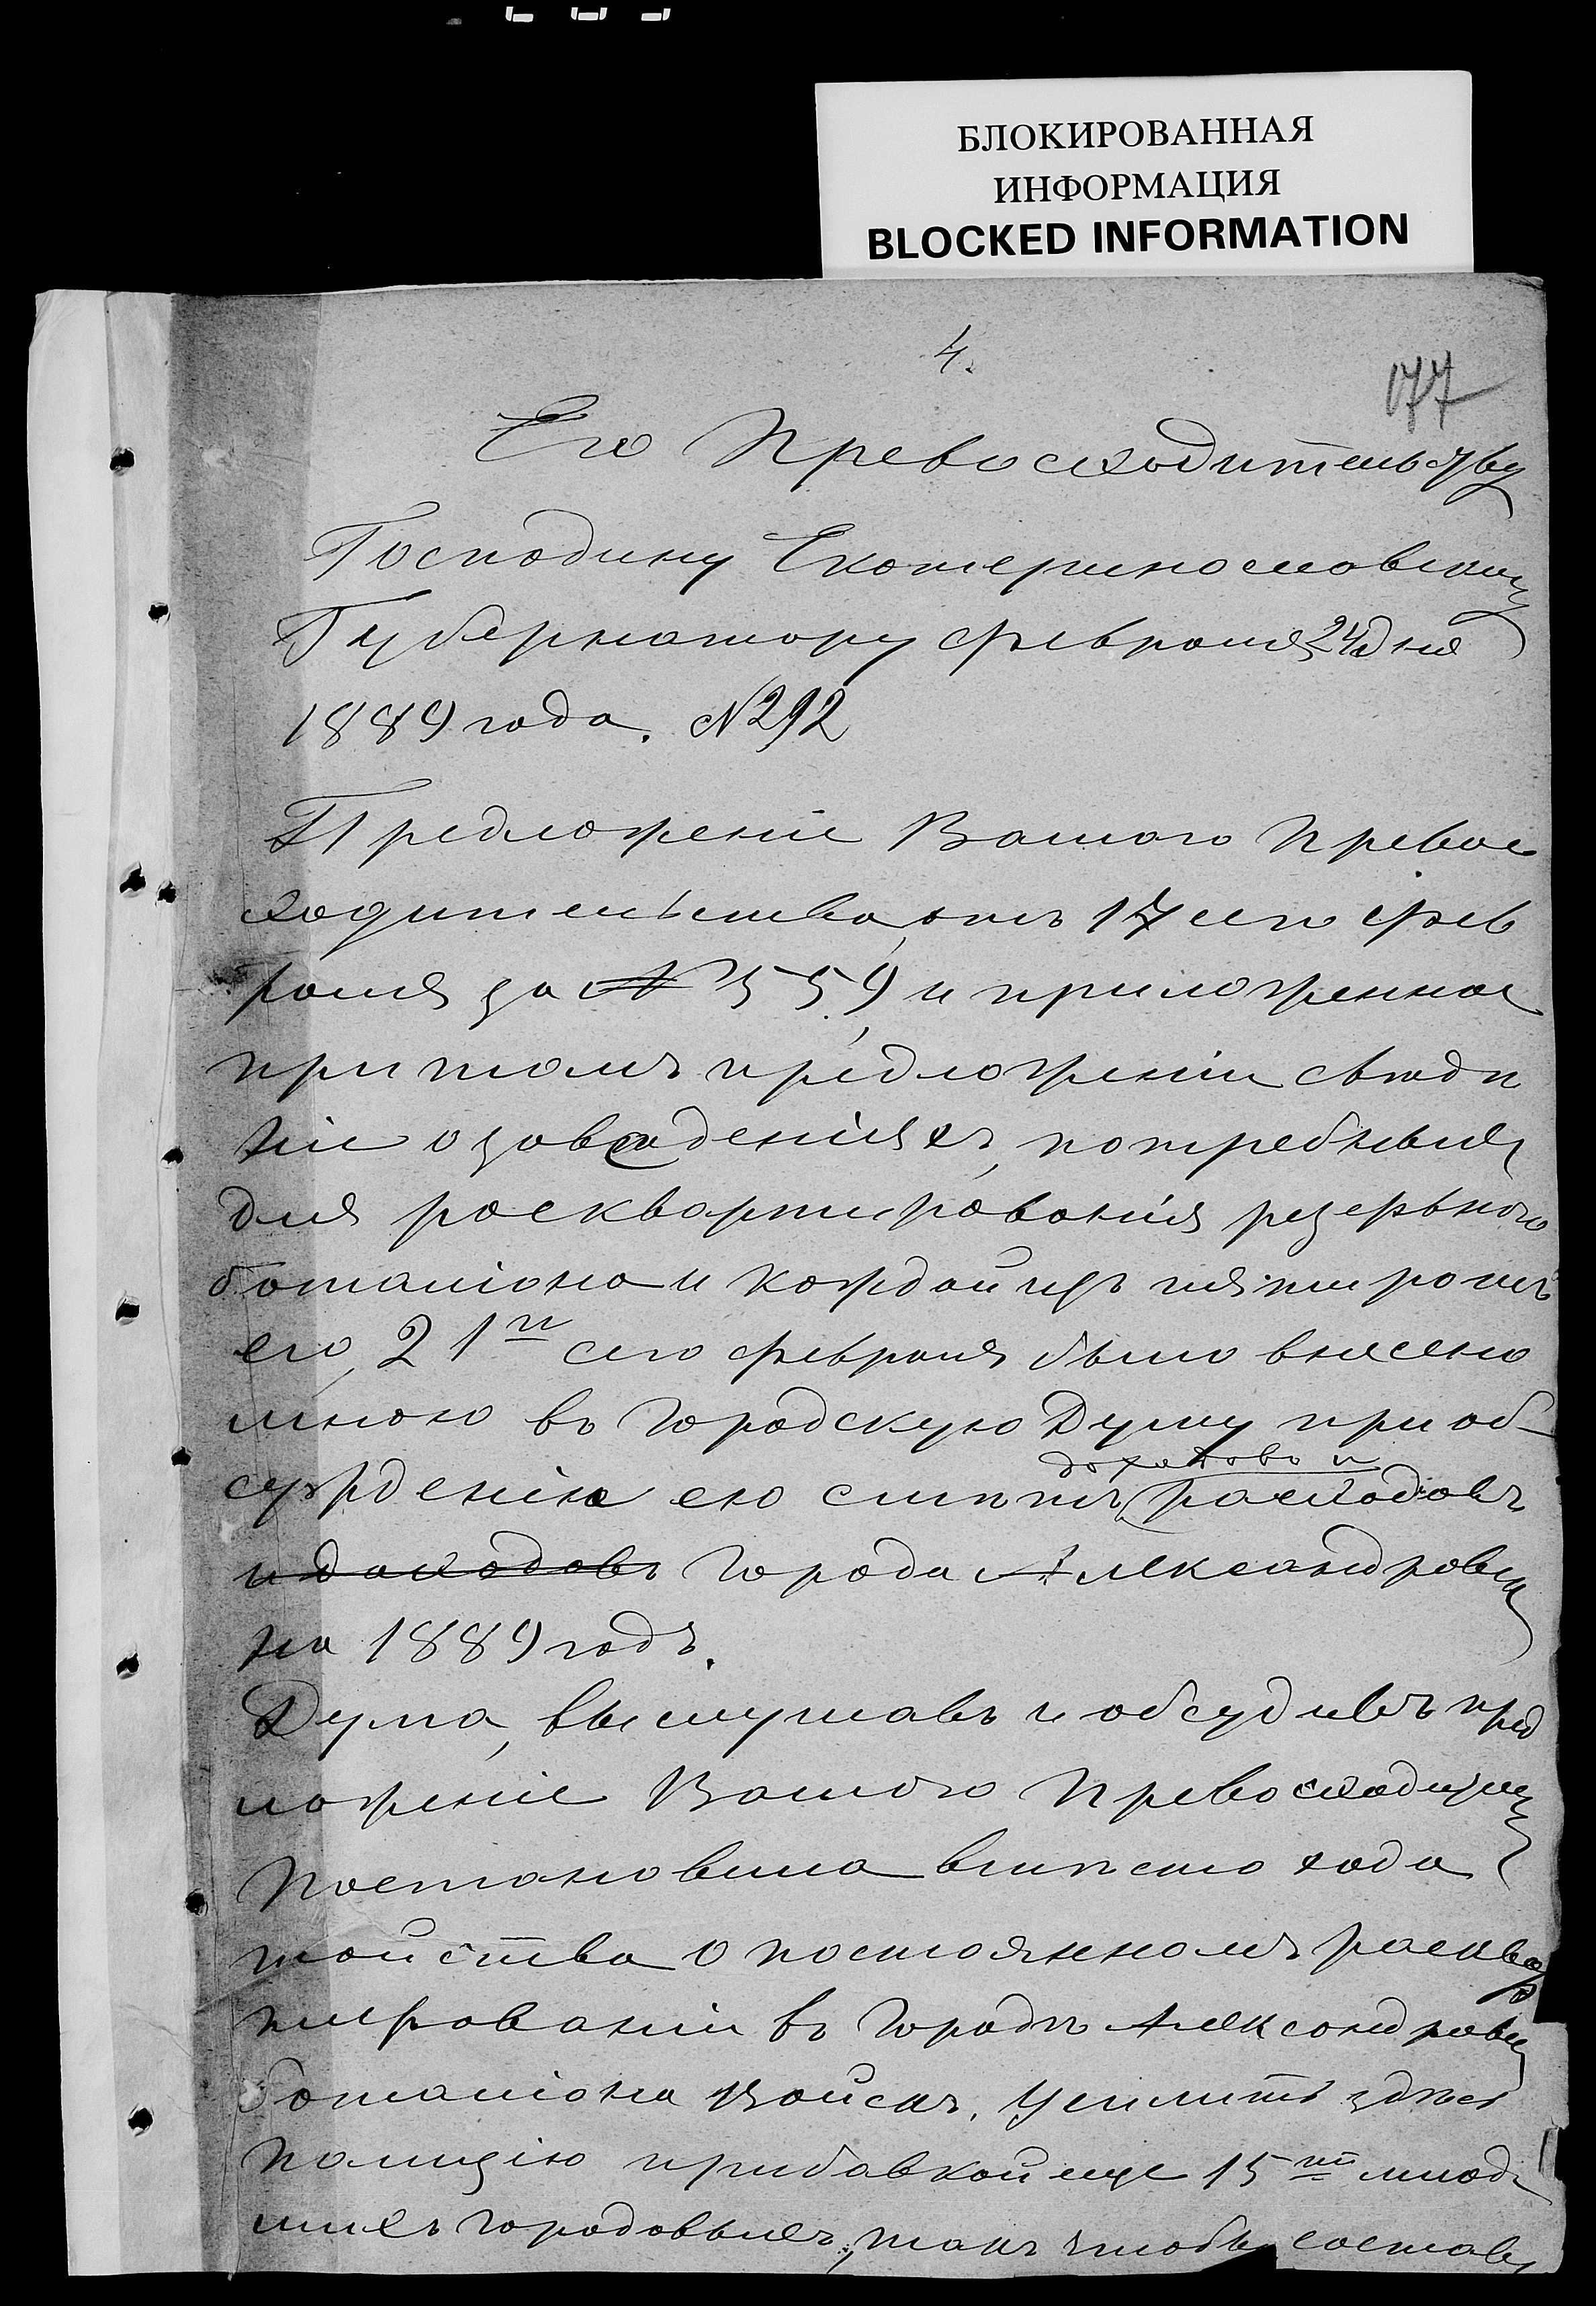 БЛОКИРОВАННАЯ
ИНФОРМАЦИЯ
BLOCKED INFORMATION
4.
177
Его Превосходительству
Господину Екатеринославскому
Губернатору февраля 24 дня
1889 года. N292
Предложеніе Вашего Превос
ходительства, отъ 17 сего фев
раля за № 559, и приложенное
при томъ предложеніи свѣдѣ
ніе о заведеніяхъ, потребныя
для расквартированія резервного
баталіона и каждой изъ пяти ротъ
его, 21го сего февраля было внесено
мною въ Городскую Думу при об-
сужденіи ею смѣтъ доходовъ и расходовъ
и доходовъ города Александровска
на 1889 годъ.
Дума, выслушавъ и обсудивъ пред
ложеніе Вашего Превосходит
постановила вмѣсто хода
тайства о постоянномъ расквар
тированіи въ городѣ Александровск
баталіона войскъ, усилить здѣсь
полицію прибавкой еще 15ти млад
шихъ городовыхъ, такъ чтобы состав